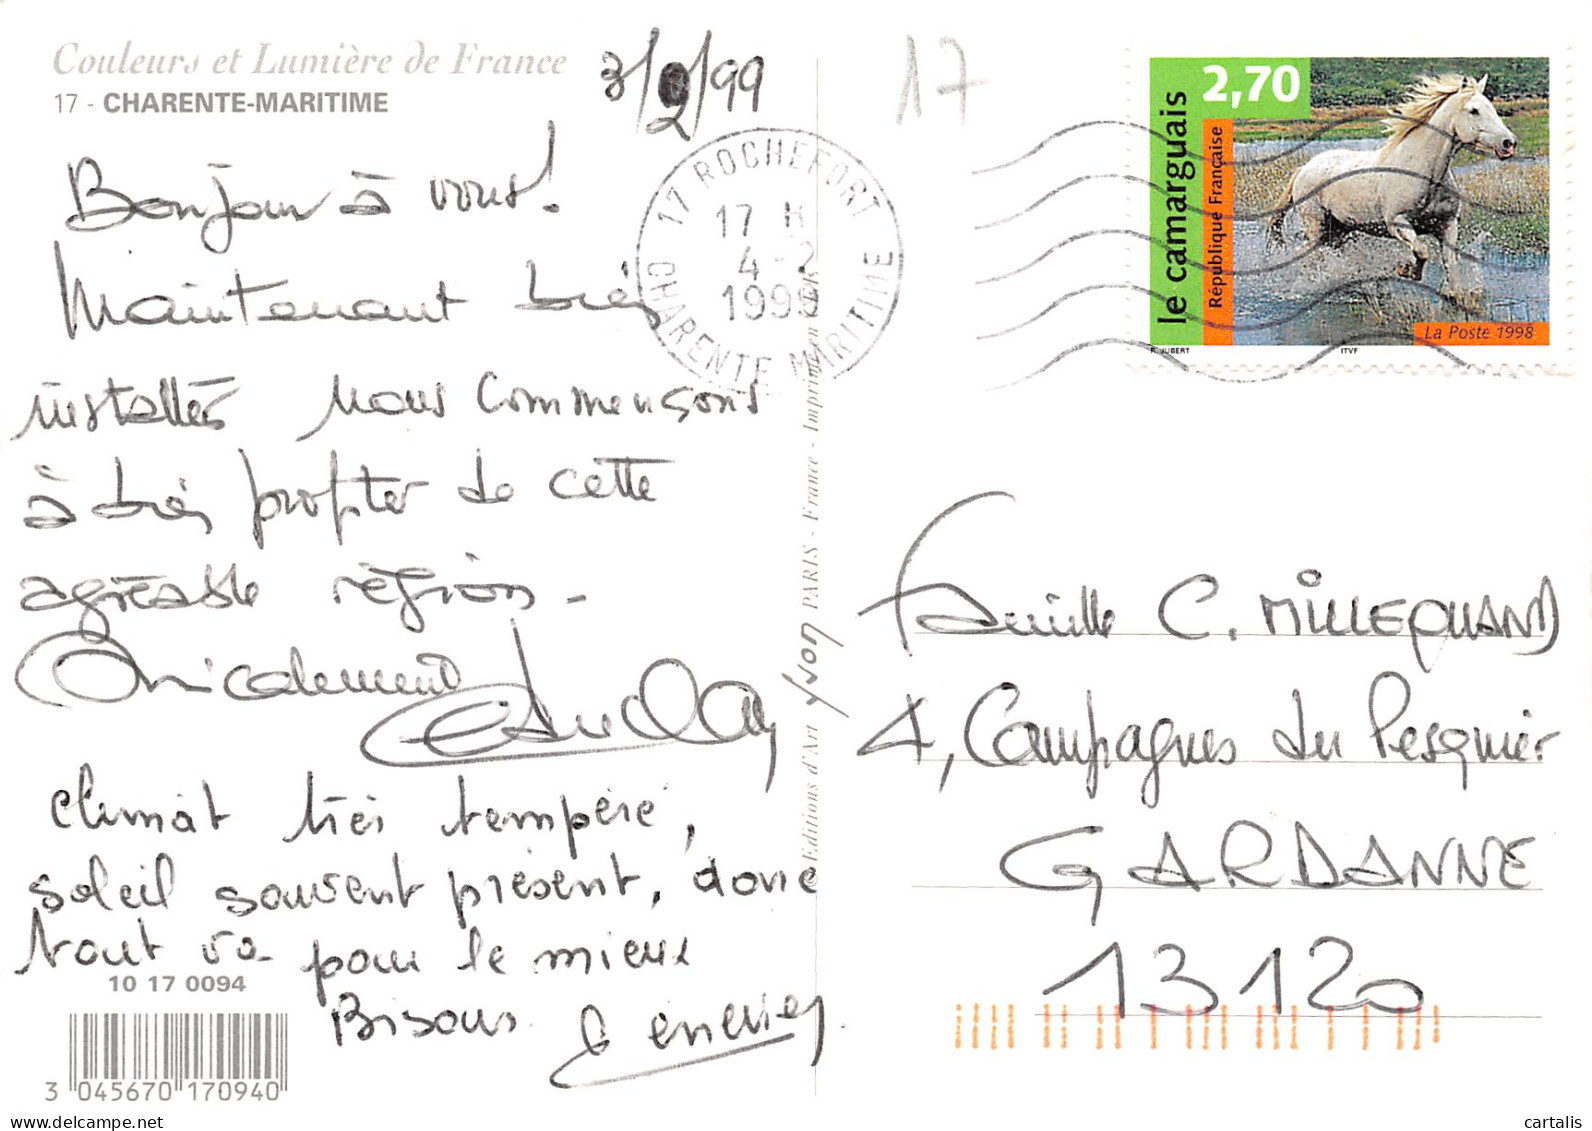 Couleurs et Lumière de France
17 - CHARENTE-MARITIME
3/2/99
17
Bonjour à vous!
Maintenant bien
installés nous commençons
à bien profiter de cette
agréable région -
Amicalement
climat très tempéré,
soleil souvent présent, donc
tout va pour le mieux
Bisous
10 17 0094
3 045670 170940
Editions d'Art Yvon PARIS - France - Imprimé en
17 ROCHEFORT
17 H
4-2
1999
CHARENTE MARITIME
2,70
le camarguais
République Française
La Poste 1998
R. JUBERT
ITVF
Famille C. MILLEQUAND
4, Campagnes du Pesquier
GARDANNE
13120
cartalis